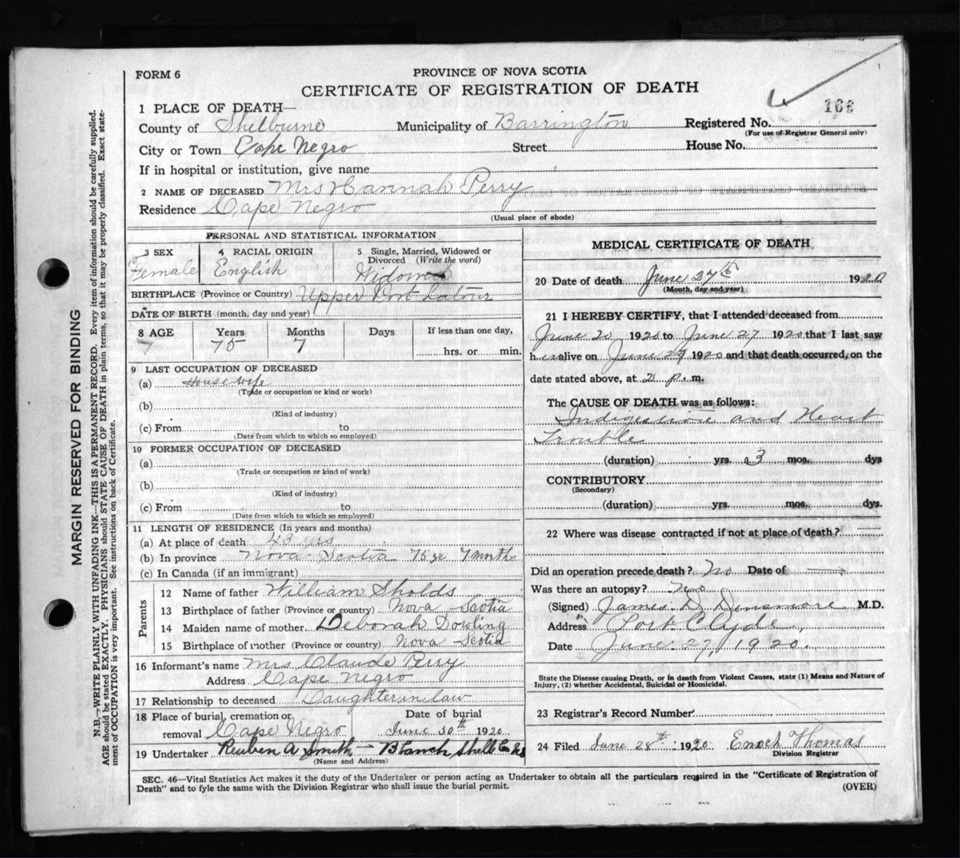 FORM 6
PROVINCE OF NOVA SCOTIA
CERTIFICATE OF REGISTRATION OF DEATH
1 PLACE OF DEATH—
County of Shelburne Municipality of Barrington Registered No. 168
(For use of Registrar General only)
City or Town Cape Negro Street House No.
If in hospital or institution, give name
2 NAME OF DECEASED Mrs Hannah Perry
Residence Cape Negro
(Usual place of abode)
PERSONAL AND STATISTICAL INFORMATION
3 SEX 4 RACIAL ORIGIN 5 Single, Married, Widowed or Divorced (Write the word)
Female English Widow
BIRTHPLACE (Province or Country) Upper Port Latour
DATE OF BIRTH (month, day and year)
8 AGE Years Months Days If less than one day,
75 7 hrs. or min.
9 LAST OCCUPATION OF DECEASED
(a) House wife
(Trade or occupation or kind or work)
(b)
(Kind of industry)
(c) From to
(Date from which to which so employed)
10 FORMER OCCUPATION OF DECEASED
(a)
(Trade or occupation or kind or work)
(b)
(Kind of industry)
(c) From to
(Date from which to which so employed)
11 LENGTH OF RESIDENCE (In years and months)
(a) At place of death 43 yrs
(b) In province Nova Scotia 75 yr 7 month
(c) In Canada (if an immigrant)
Parents
12 Name of father William Sholds
13 Birthplace of father (Province or country) Nova Scotia
14 Maiden name of mother Deborah Dowling
15 Birthplace of mother (Province or country) Nova Scotia
16 Informant's name Mrs Claude Perry
Address Cape Negro
17 Relationship to deceased Daughter in law
18 Place of burial, cremation or Date of burial
removal Cape Negro June 30th 1920
19 Undertaker Reuben A. Smith - Blanch Shelb Co NS
(Name and Address)
MEDICAL CERTIFICATE OF DEATH
20 Date of death June 27th 1920
(Month, day and year)
21 I HEREBY CERTIFY, that I attended deceased from
June 20 1920 to June 27 1920 that I last saw
her alive on June 27 1920 and that death occurred, on the
date stated above, at 2 p.m.
The CAUSE OF DEATH was as follows:
Indigestion and Heart
Trouble
(duration) yrs. 3 mos. dys
CONTRIBUTORY
(Secondary)
(duration) yrs. mos. dys.
22 Where was disease contracted if not at place of death?
Did an operation precede death? No Date of —
Was there an autopsy? No
(Signed) James D. Densmore M.D.
Address Port Clyde,
Date June 27, 1920.
State the Disease causing Death, or in death from Violent Causes, state (1) Means and Nature of
Injury, (2) whether Accidental, Suicidal or Homicidal.
23 Registrar's Record Number
24 Filed June 28th 1920 Enoch Thomas
Division Registrar
SEC. 46—Vital Statistics Act makes it the duty of the Undertaker or person acting as Undertaker to obtain all the particulars required in the "Certificate of Registration of
Death" and to fyle the same with the Division Registrar who shall issue the burial permit. (OVER)
MARGIN RESERVED FOR BINDING
N.B.—WRITE PLAINLY WITH UNFADING INK—THIS IS A PERMANENT RECORD. Every item of information should be carefully supplied.
AGE should be stated EXACTLY. PHYSICIANS should STATE CAUSE OF DEATH in plain terms, so that it may be properly classified. Exact state-
ment of OCCUPATION is very important. See instructions on back of Certificate.